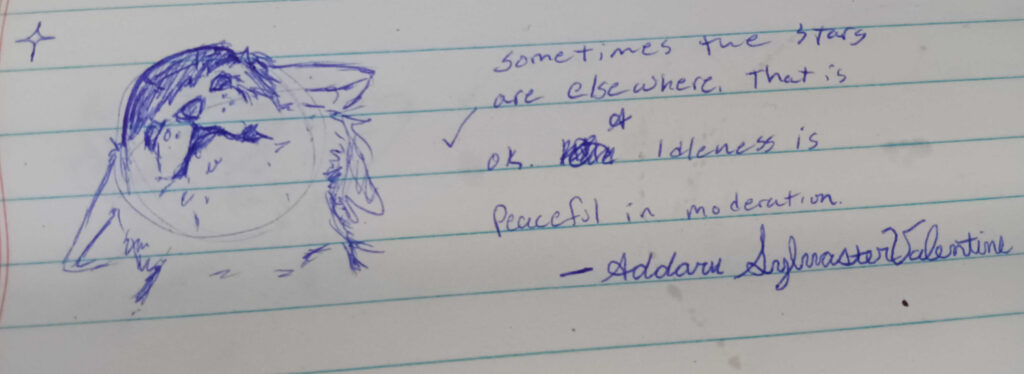 Sometimes the stars
are elsewhere. That is
ok. Idleness is
Peaceful in moderation.
— Addaru Sylvaster Valentine